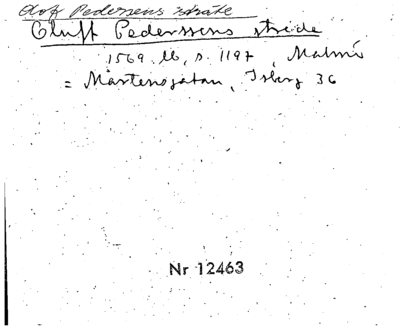 Olof Pedersens stråte
Oluff Pederssens stride
1569. M, s. 1197, Malmö
= Mårtensgatan, Isberg 36
Nr 12463